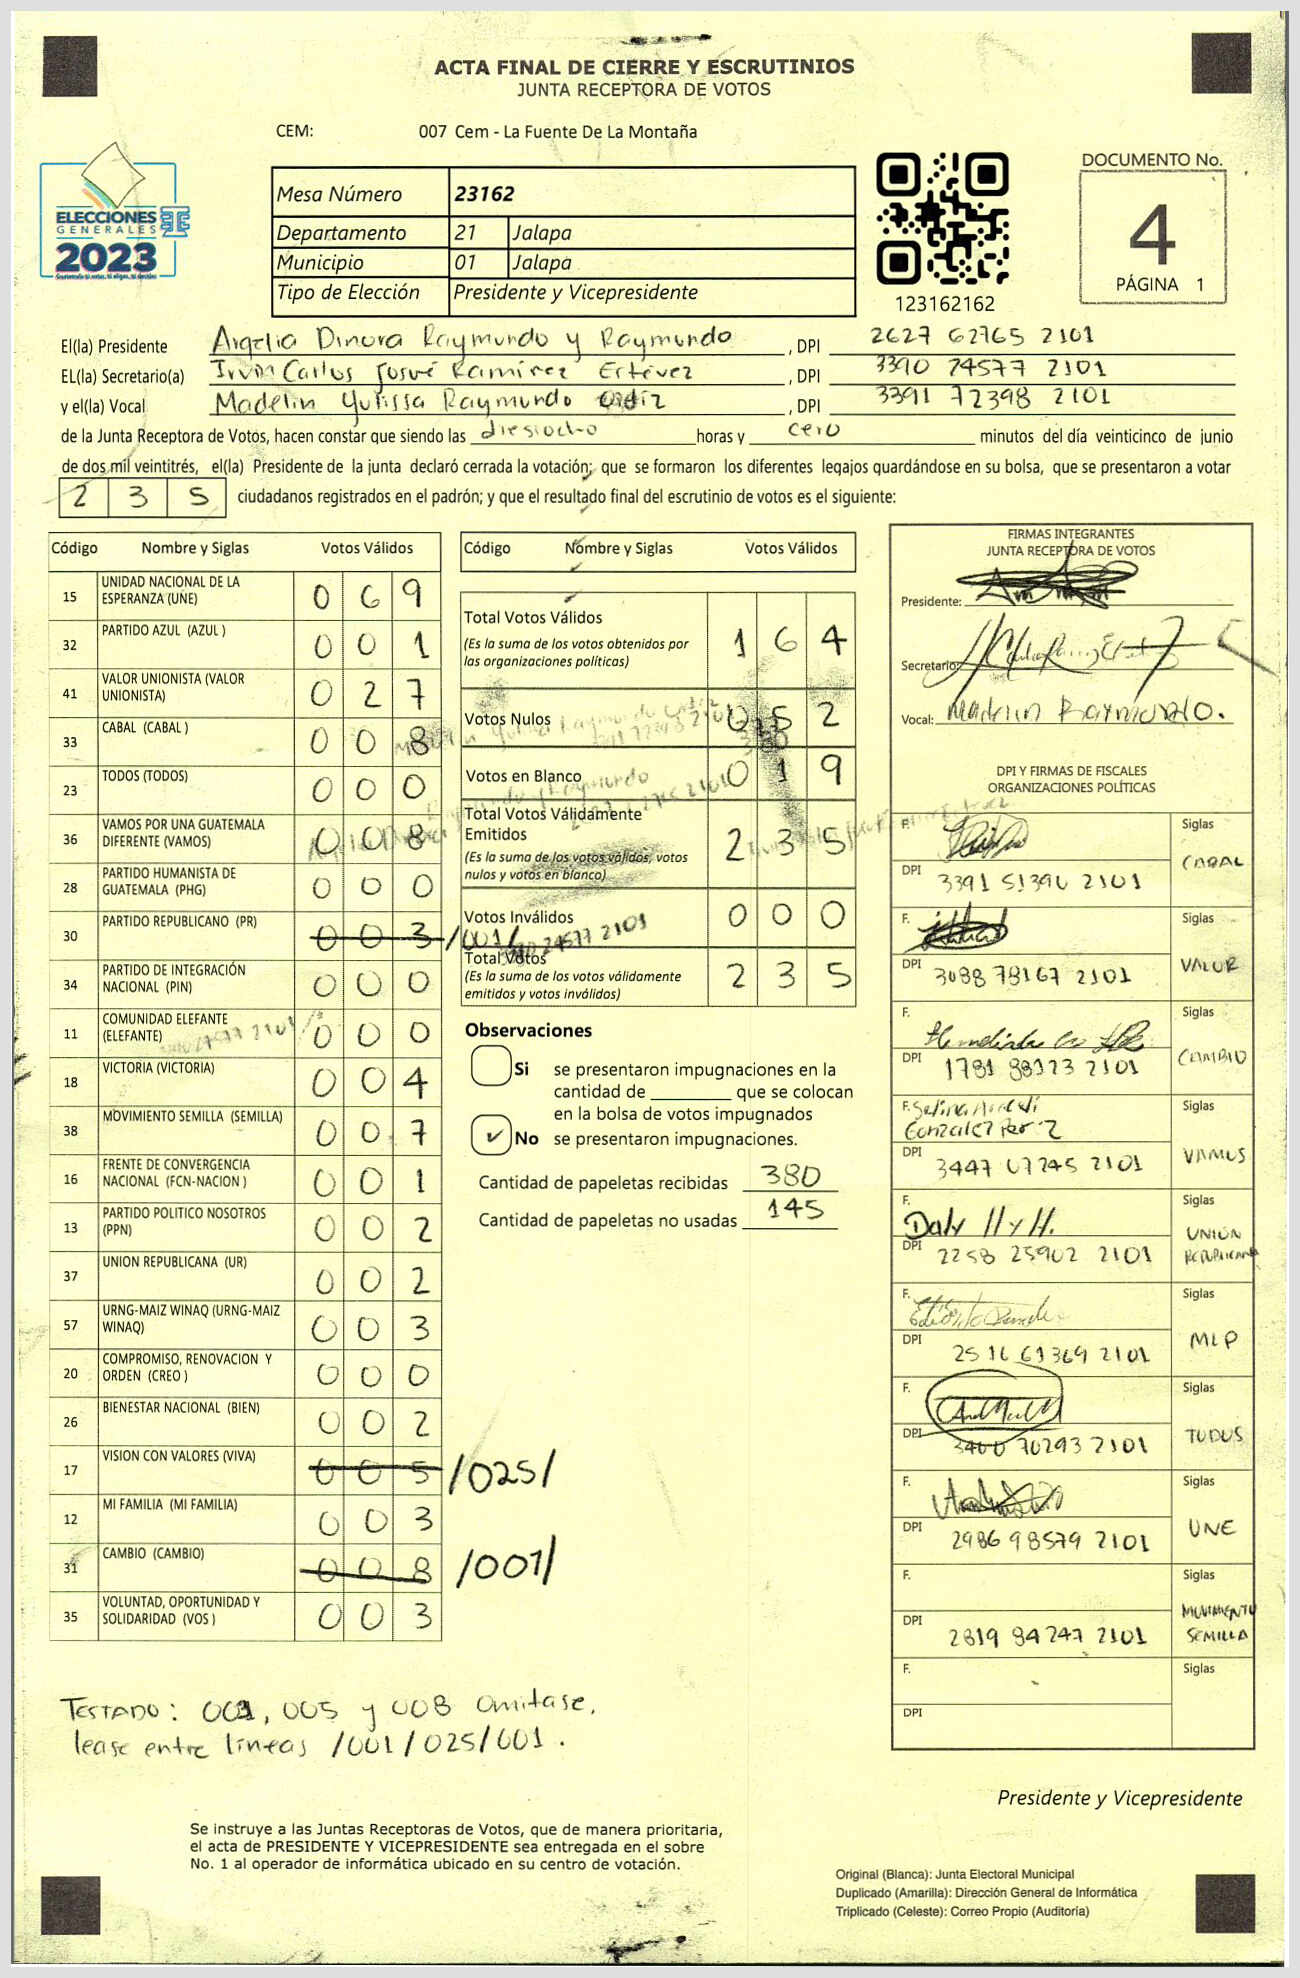 ACTA FINAL DE CIERRE Y ESCRUTINIOS
JUNTA RECEPTORA DE VOTOS
CEM: 007 Cem - La Fuente De La Montaña
ELECCIONES
GENERALES
2023
Mesa Número 23162
Departamento 21 Jalapa
Municipio 01 Jalapa
Tipo de Elección Presidente y Vicepresidente
123162162
DOCUMENTO No.
4
PÁGINA 1
El(la) Presidente Argelia Dinora Raymundo y Raymundo , DPI 2627 62765 2101
EL(la) Secretario(a) Irvin Carlos Josué Ramírez Estévez , DPI 3390 24577 2101
y el(la) Vocal Madelin Yulissa Raymundo , DPI 3391 72398 2101
de la Junta Receptora de Votos, hacen constar que siendo las diesiocho horas y cero minutos del día veinticinco de junio
de dos mil veintitrés, el(la) Presidente de la junta declaró cerrada la votación; que se formaron los diferentes legajos guardándose en su bolsa, que se presentaron a votar
2 3 5 ciudadanos registrados en el padrón; y que el resultado final del escrutinio de votos es el siguiente:
Código Nombre y Siglas Votos Válidos
15 UNIDAD NACIONAL DE LA ESPERANZA (UNE) 0 6 9
32 PARTIDO AZUL (AZUL ) 0 0 1
41 VALOR UNIONISTA (VALOR UNIONISTA) 0 2 7
33 CABAL (CABAL ) 0 0 8
23 TODOS (TODOS) 0 0 0
36 VAMOS POR UNA GUATEMALA DIFERENTE (VAMOS) 0 0 8
28 PARTIDO HUMANISTA DE GUATEMALA (PHG) 0 0 0
30 PARTIDO REPUBLICANO (PR) 0 0 3 /001/
34 PARTIDO DE INTEGRACIÓN NACIONAL (PIN) 0 0 0
11 COMUNIDAD ELEFANTE (ELEFANTE) 0 0 0
18 VICTORIA (VICTORIA) 0 0 4
38 MOVIMIENTO SEMILLA (SEMILLA) 0 0 7
16 FRENTE DE CONVERGENCIA NACIONAL (FCN-NACION ) 0 0 1
13 PARTIDO POLITICO NOSOTROS (PPN) 0 0 2
37 UNION REPUBLICANA (UR) 0 0 2
57 URNG-MAIZ WINAQ (URNG-MAIZ WINAQ) 0 0 3
20 COMPROMISO, RENOVACION Y ORDEN (CREO ) 0 0 0
26 BIENESTAR NACIONAL (BIEN) 0 0 2
17 VISION CON VALORES (VIVA) 0 0 5 /025/
12 MI FAMILIA (MI FAMILIA) 0 0 3
31 CAMBIO (CAMBIO) 0 0 8 /001/
35 VOLUNTAD, OPORTUNIDAD Y SOLIDARIDAD (VOS ) 0 0 3
Código Nombre y Siglas Votos Válidos
Total Votos Válidos 1 6 4
(Es la suma de los votos obtenidos por
las organizaciones políticas)
Votos Nulos 0 5 2
Votos en Blanco 0 1 9
Total Votos Válidamente
Emitidos 2 3 5
(Es la suma de los votos válidos, votos
nulos y votos en blanco)
Votos Inválidos 0 0 0
24577 2101
Total Votos 2 3 5
(Es la suma de los votos válidamente
emitidos y votos inválidos)
Observaciones
Si se presentaron impugnaciones en la
cantidad de ________ que se colocan
en la bolsa de votos impugnados
✓ No se presentaron impugnaciones.
Cantidad de papeletas recibidas 380
Cantidad de papeletas no usadas 145
FIRMAS INTEGRANTES
JUNTA RECEPTORA DE VOTOS
Presidente:
Secretario:
Vocal: Madelin Raymundo.
DPI Y FIRMAS DE FISCALES
ORGANIZACIONES POLÍTICAS
F. Siglas CABAL
DPI 3391 51396 2101
F. Siglas VALOR
DPI 3088 78167 2101
F. Siglas CAMBIO
DPI 1781 88123 2101
F. Gonzalez Siglas VAMOS
DPI 3447 07245 2101
F. Siglas UNION REPUBLICANA
DPI 2258 25902 2101
F. Siglas MLP
DPI 2516 61369 2101
F. Siglas TODOS
DPI 3400 70293 2101
F. Siglas UNE
DPI 2986 98579 2101
F. Siglas MOVIMIENTO SEMILLA
DPI 2819 84247 2101
F. Siglas
DPI
TESTADO: 003, 005 y 008 omitase.
lease entre líneas /001/025/001.
Presidente y Vicepresidente
Se instruye a las Juntas Receptoras de Votos, que de manera prioritaria,
el acta de PRESIDENTE Y VICEPRESIDENTE sea entregada en el sobre
No. 1 al operador de informática ubicado en su centro de votación.
Original (Blanca): Junta Electoral Municipal
Duplicado (Amarilla): Dirección General de Informática
Triplicado (Celeste): Correo Propio (Auditoría)